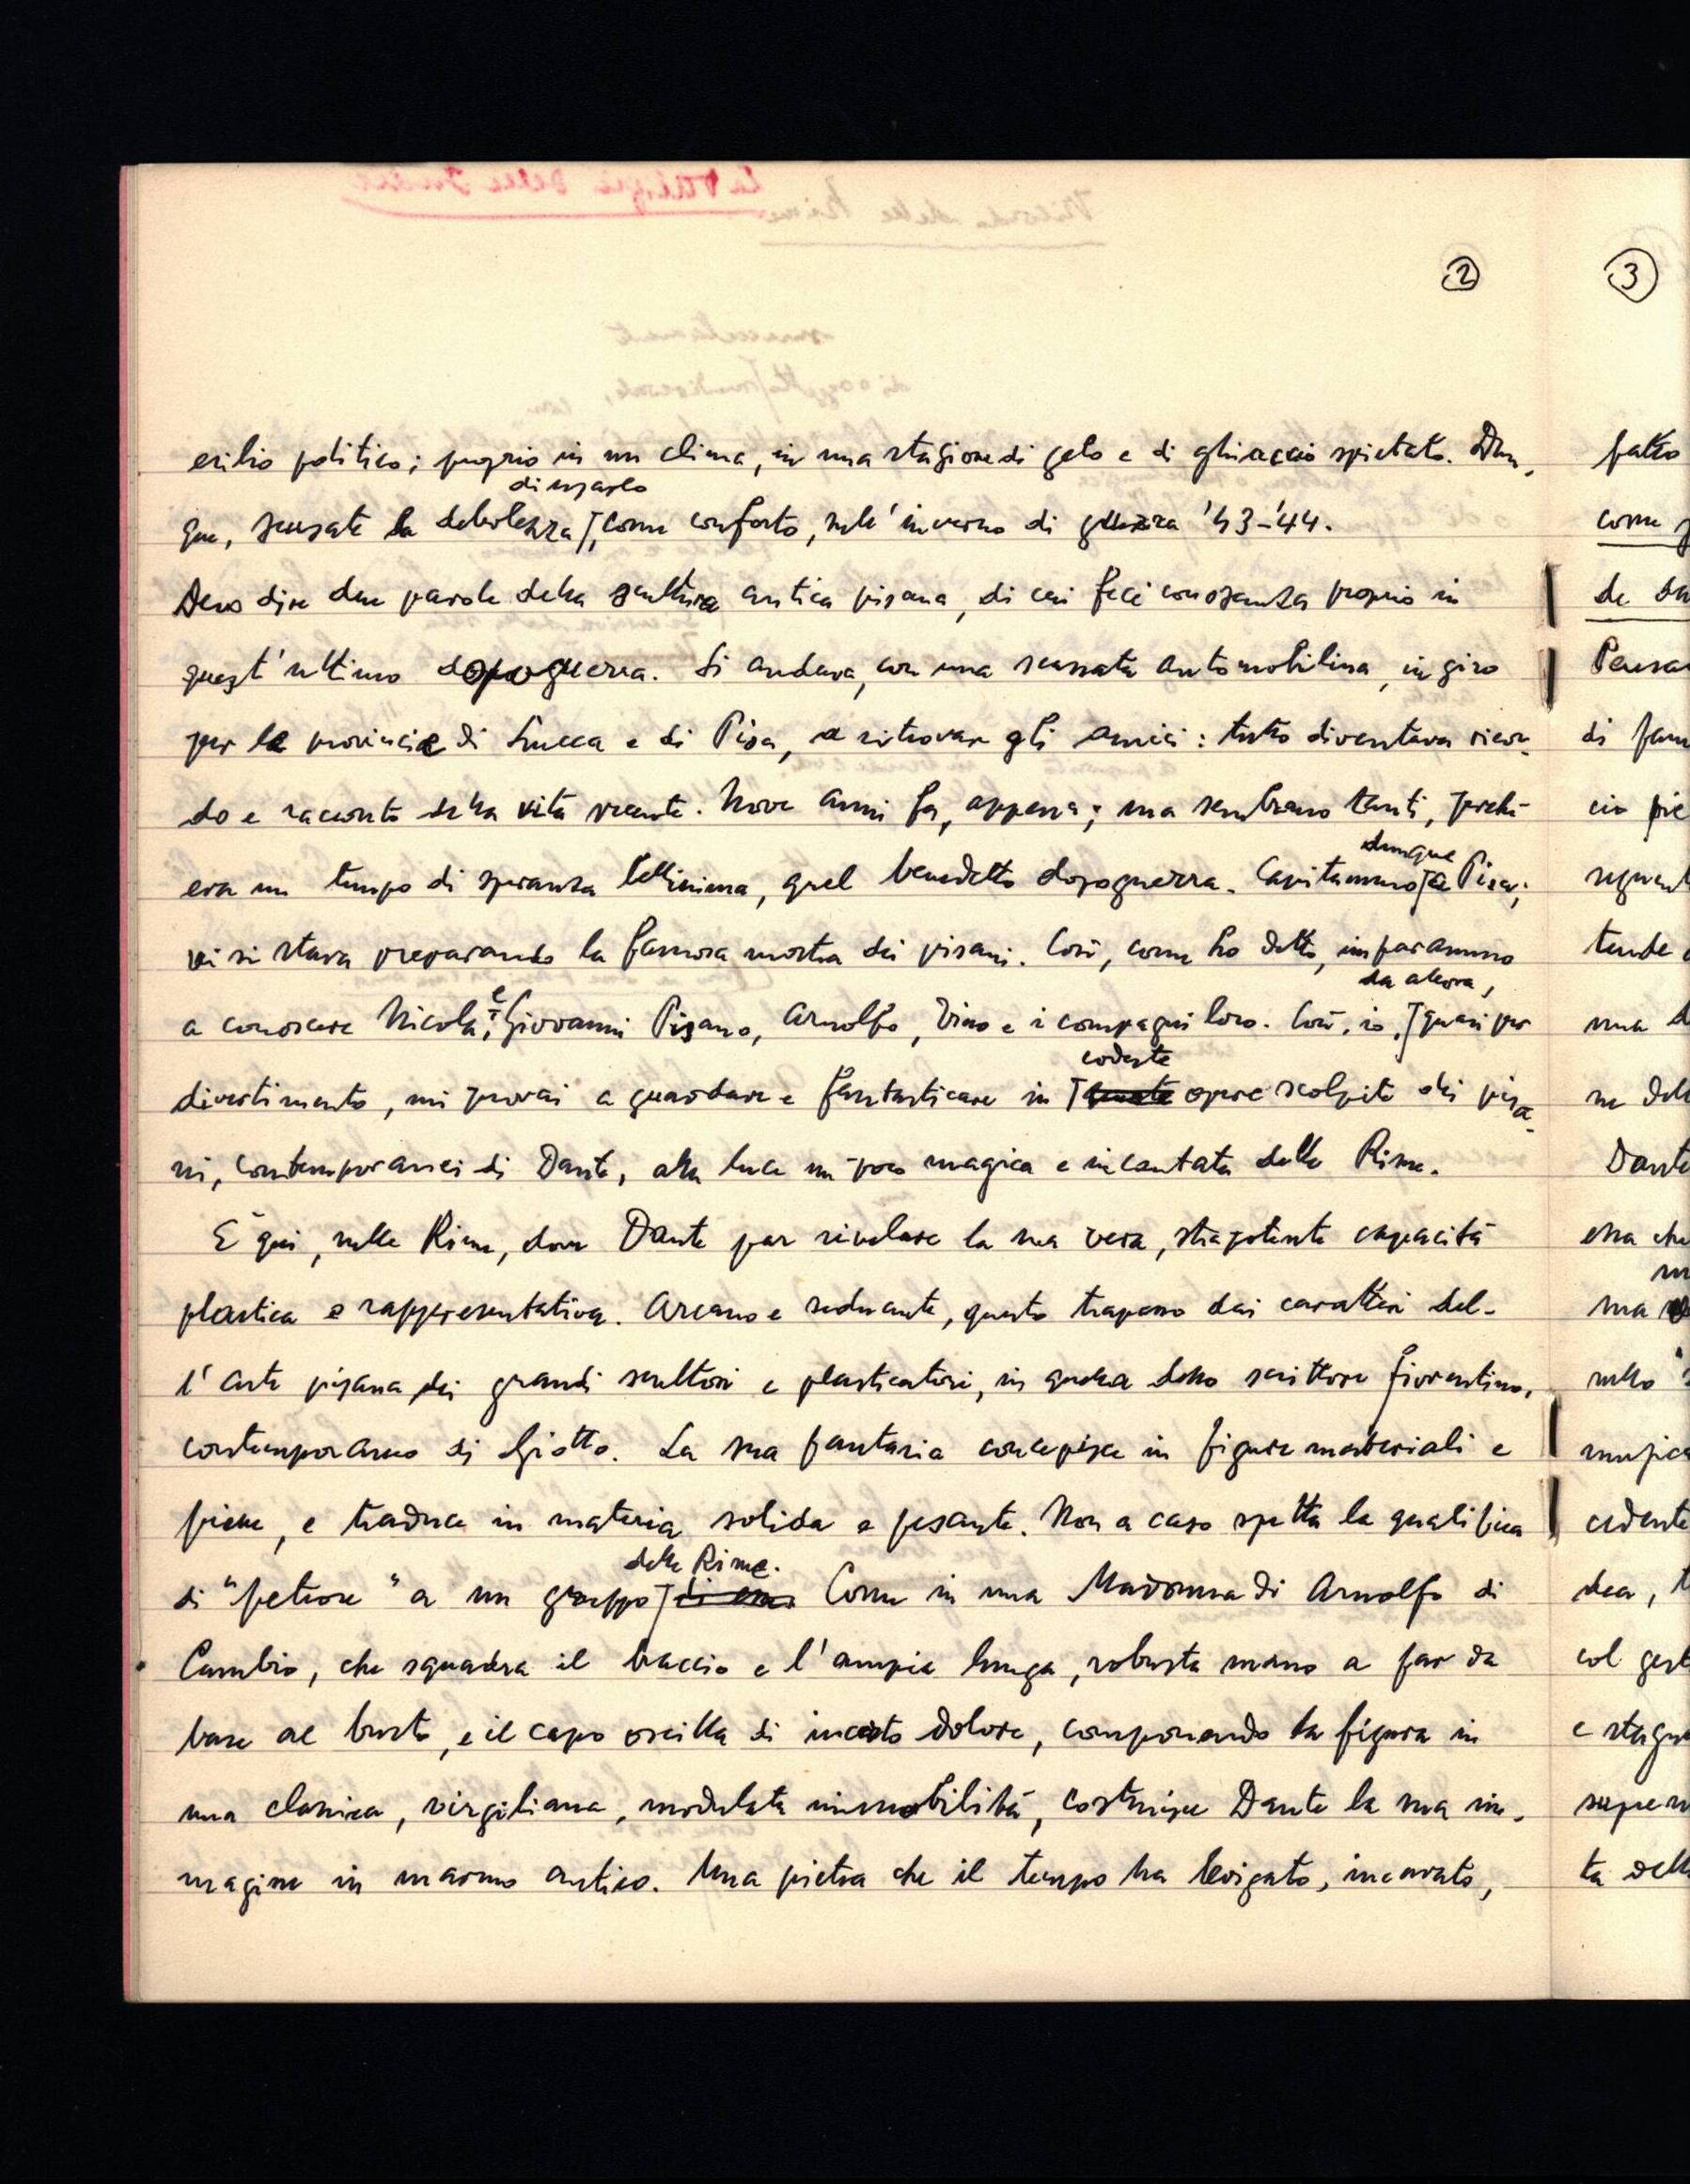 ②
esilio politico; proprio in un clima, in una stagione di gelo e di ghiaccio spietato. Dun-
di usarlo
que, scusate la debolezza, come conforto, nell'inverno di guerra '43-'44.
Devo dire due parole della scultura antica pisana, di cui feci conoscenza proprio in
quest'ultimo dopoguerra. Si andava, con una scassata automobilina, in giro
per le provincie di Lucca e di Pisa, a ritrovare gli amici: tutto diventava ricor-
do e racconto della vita recente. Nove anni fa, appena; ma sembrano tanti, perché
era un tempo di speranza bellissima, quel benedetto dopoguerra. Capitammo a Pisa;
dunque
vi si stava preparando la famosa mostra dei pisani. Così, come ho detto, imparammo
a conoscere Nicola, e Giovanni Pisano, Arnolfo, Tino e i compagni loro. Così, io, quasi per
da allora,
divertimento, mi provai a guardare e fantasticare in opere scolpite dei pisa-
codeste
ni, contemporanei di Dante, alla luce un poco magica e incantata delle Rime.
È qui, nelle Rime, dove Dante par rivelare la sua vera, strapotente capacità
plastica e rappresentativa. Arcano e seducente, questo trapasso dai caratteri del-
l'arte pisana dei grandi scultori e plasticatori, in quella dello scrittore fiorentino,
contemporaneo di Giotto. La sua fantasia concepisce in figure materiali e
piene, e traduce in materia solida e pesante. Non a caso spetta la qualifica
delle Rime.
di "petrose" a un gruppo Come in una Madonna di Arnolfo di
Cambio, che squadra il braccio e l'ampia lunga, robusta mano a far da
base al busto, e il capo oscilla di incerto dolore, componendo la figura in
una classica, virgiliana, modulata immobilità, costruisce Dante la sua im-
magine in marmo antico. Una pietra che il tempo ha levigato, incavato,
③
fatto
come
di
cio
tende
una
Dante
ma
cedente
dea,
col